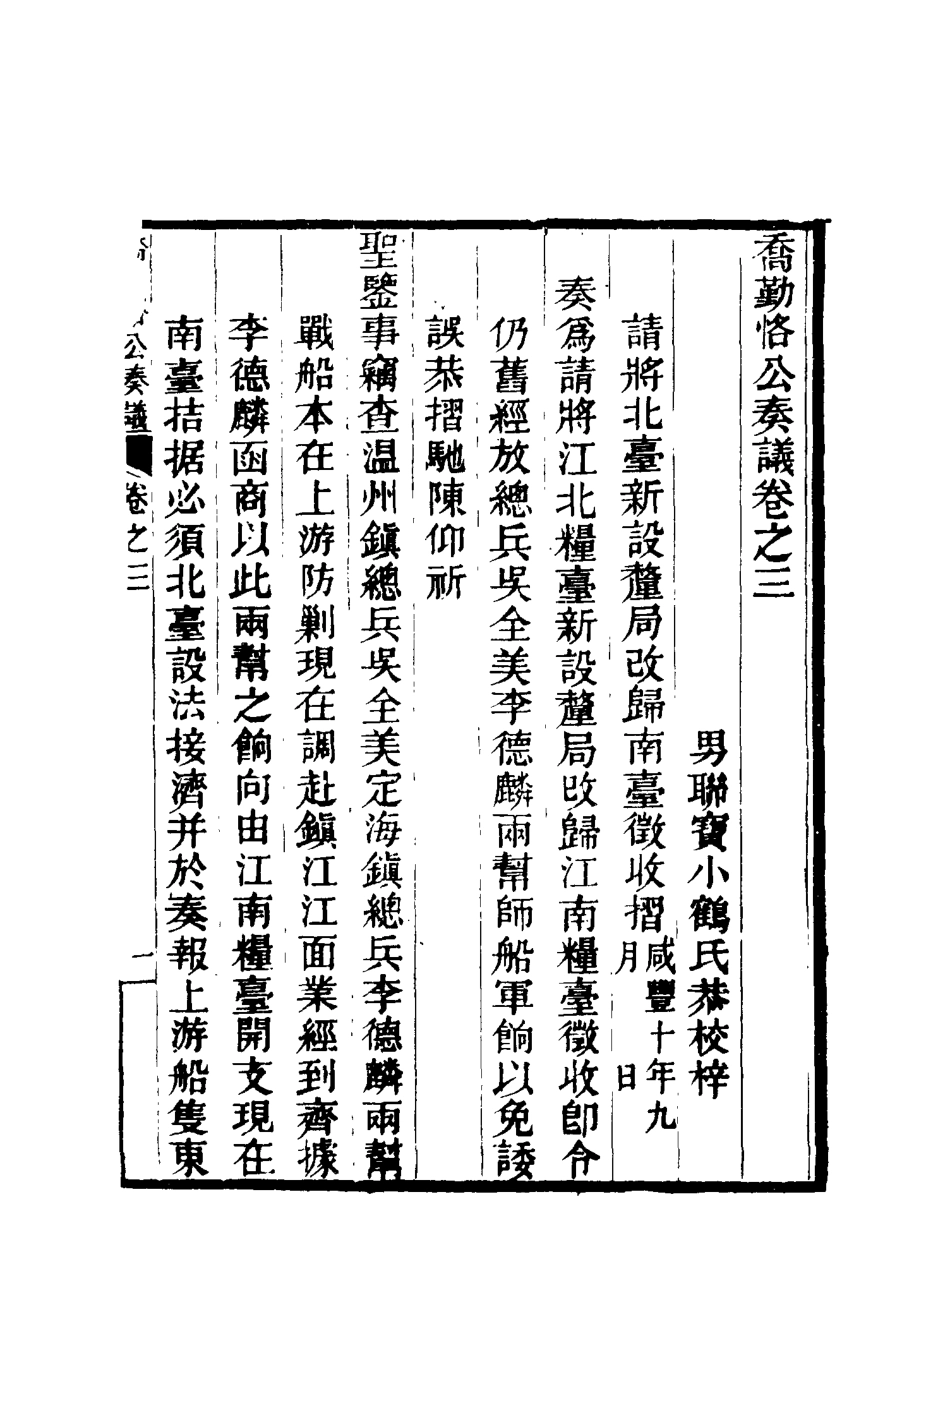 喬勤恪公奏議卷之三
男聯寶小鶴氏恭校梓
請將北臺新設釐局改歸南臺徵收摺咸豐十年九月 日
奏爲請將江北糧臺新設釐局改歸江南糧臺徵收卽令
仍舊經放總兵吳全美李德麟兩幫師船軍餉以免諉
誤恭摺馳陳仰祈
聖鑒事竊查温州鎭總兵吳全美定海鎭總兵李德麟兩幫
戰船本在上游防剿現在調赴鎭江江面業經到齊據
李德麟函商以此兩幫之餉向由江南糧臺開支現在
南臺拮据必須北臺設法接濟并於奏報上游船隻東
公奏議 卷之三 一